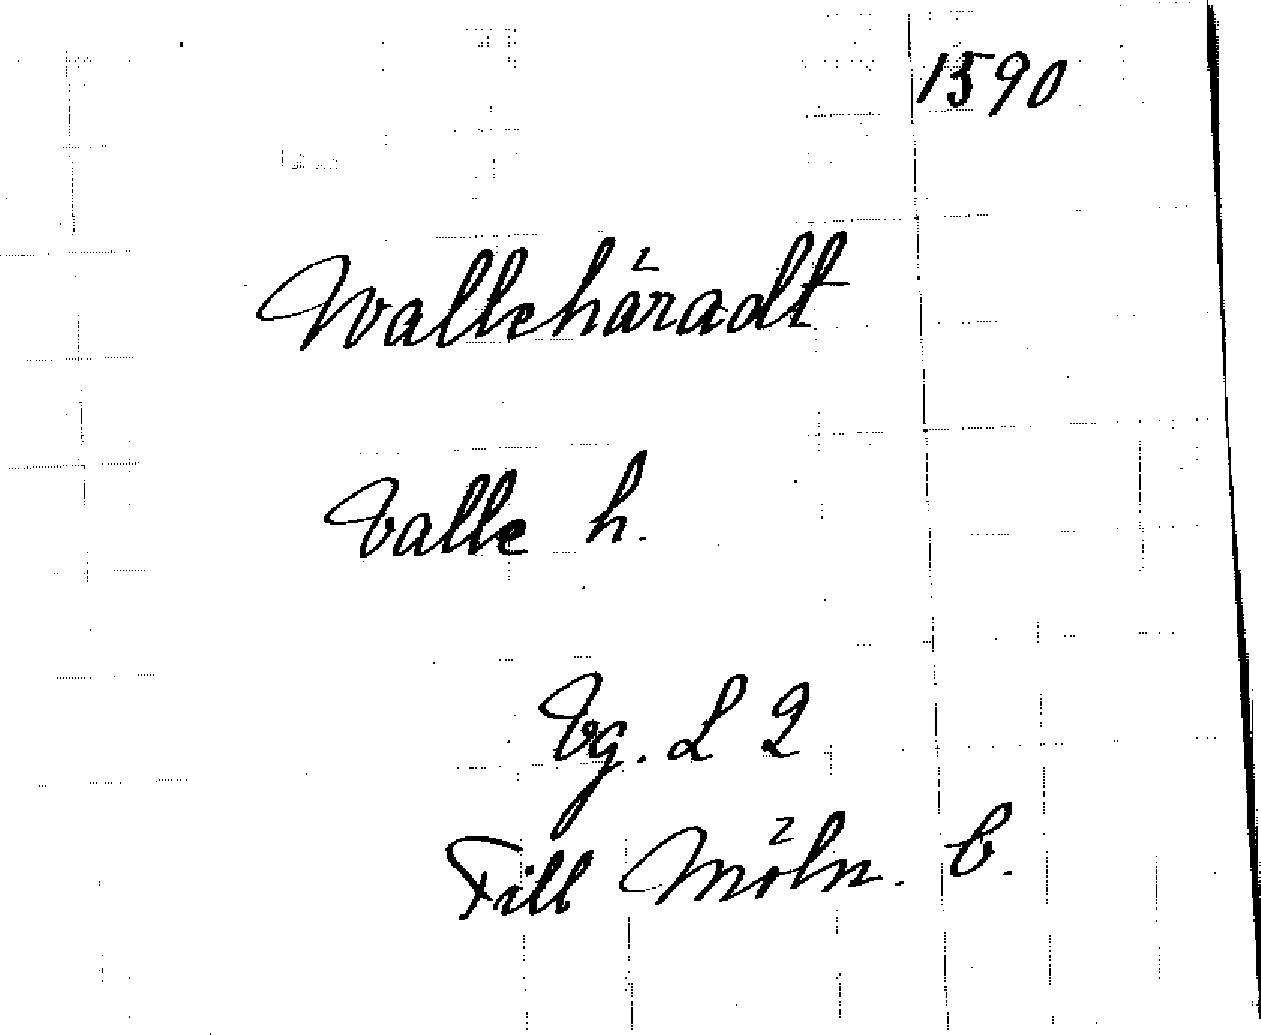 1590
Wallehäradt
Valle h.
Vg. L 2
Till Möln. C.